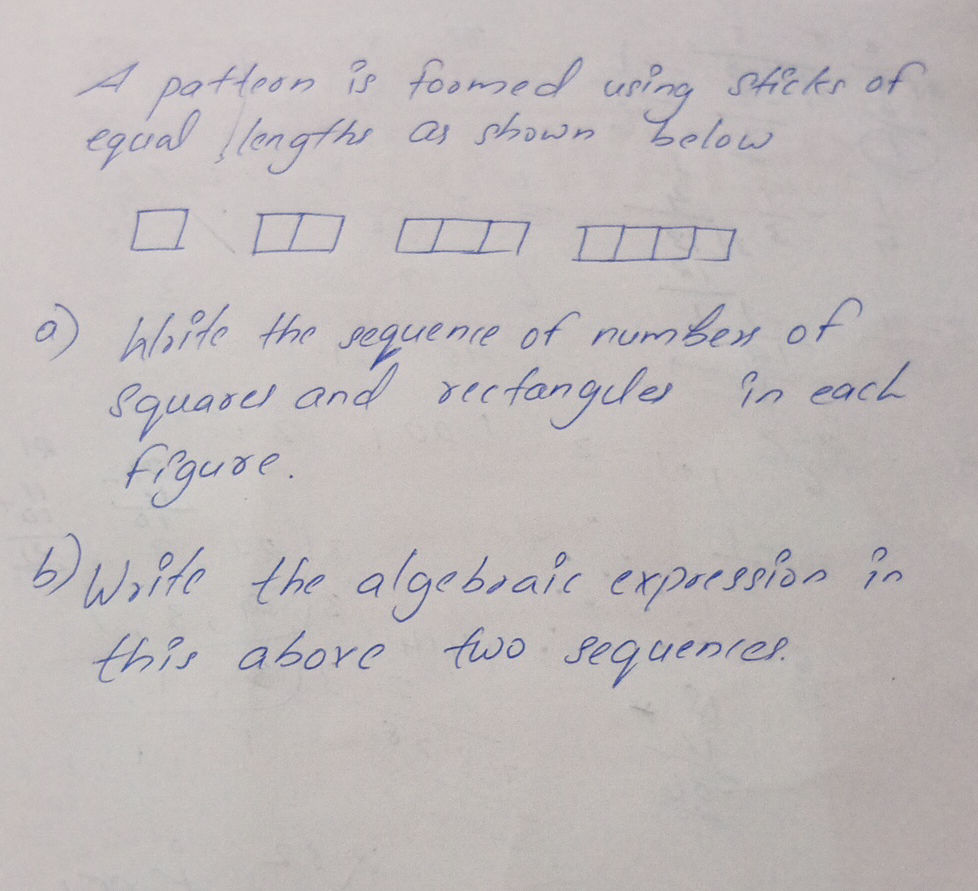 A pattern is formed using sticks of
equal lengths as shown below
a) Write the sequence of numbers of
squares and rectangules in each
figure.
b) Write the algebraic expression in
this above two sequences.